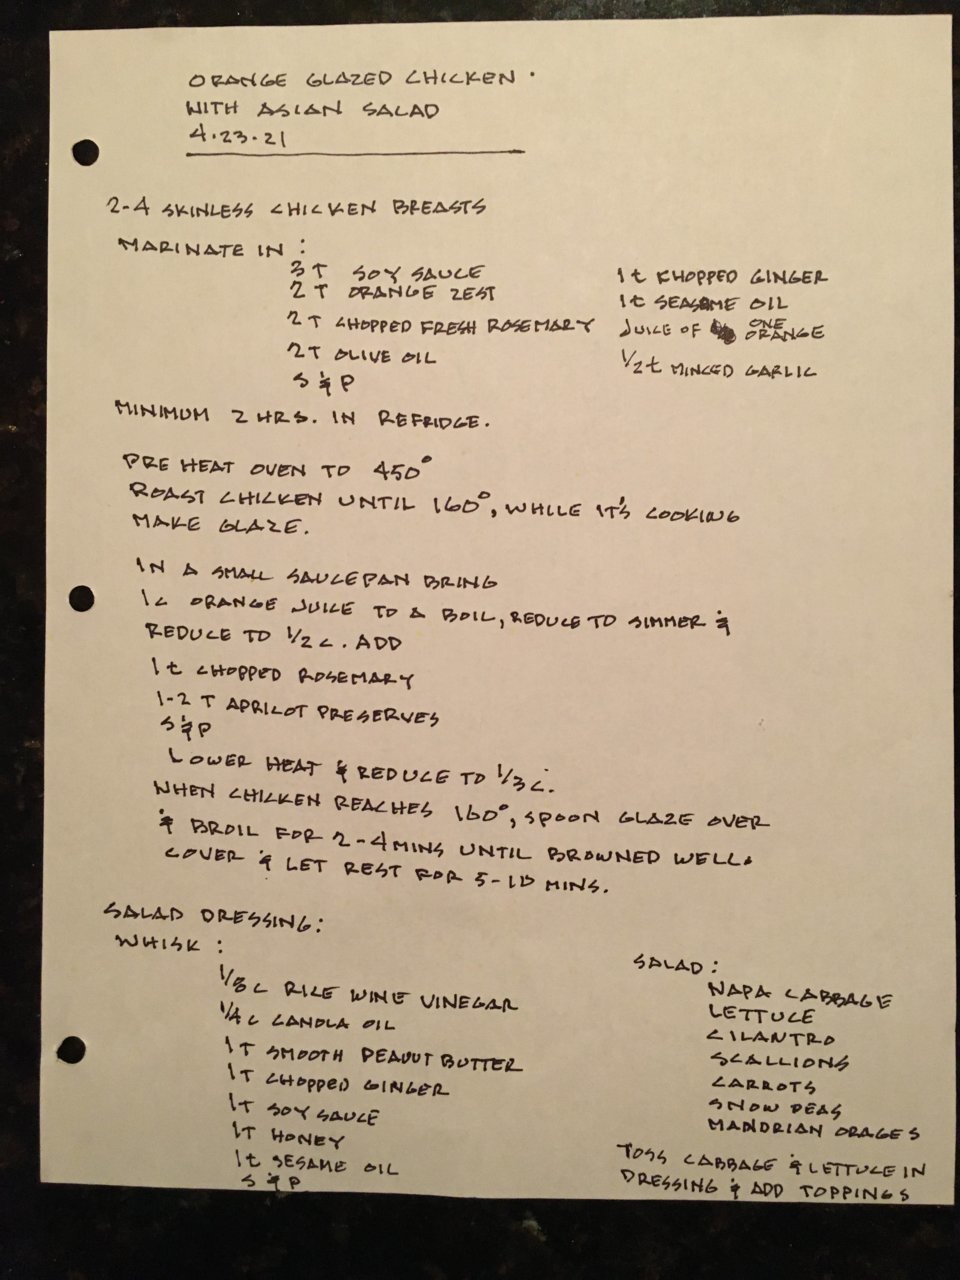 ORANGE GLAZED CHICKEN.
WITH ASIAN SALAD
4.23.21
2-4 SKINLESS CHICKEN BREASTS
MARINATE IN :
3 T SOY SAUCE
2 T ORANGE ZEST
2 T CHOPPED FRESH ROSEMARY
2T OLIVE OIL
S & P
1 t CHOPPED GINGER
1t SEASAME OIL
JUICE OF ONE ORANGE
1/2 t MINCED GARLIC
MINIMUM 2 HRS. IN REFRIDGE.
PRE HEAT OVEN TO 450°
ROAST CHICKEN UNTIL 160°, WHILE IT'S COOKING
MAKE GLAZE.
IN A SMALL SAUCEPAN BRING
1C ORANGE JUICE TO A BOIL, REDUCE TO SIMMER &
REDUCE TO 1/2 C. ADD
1 t CHOPPED ROSEMARY
1-2 T APRICOT PRESERVES
S & P
LOWER HEAT & REDUCE TO 1/3 C.
WHEN CHICKEN REACHES 160°, SPOON GLAZE OVER
& BROIL FOR 2-4 MINS UNTIL BROWNED WELL.
COVER & LET REST FOR 5-10 MINS.
SALAD DRESSING:
WHISK :
1/3 C RICE WINE VINEGAR
1/4 C CANOLA OIL
1T SMOOTH PEANUT BUTTER
1T CHOPPED GINGER
1T SOY SAUCE
1T HONEY
1t SESAME OIL
S & P
SALAD :
NAPA CABBAGE
LETTUCE
CILANTRO
SCALLIONS
CARROTS
SNOW PEAS
MANDRIAN ORAGES
TOSS CABBAGE & LETTUCE IN
DRESSING & ADD TOPPINGS